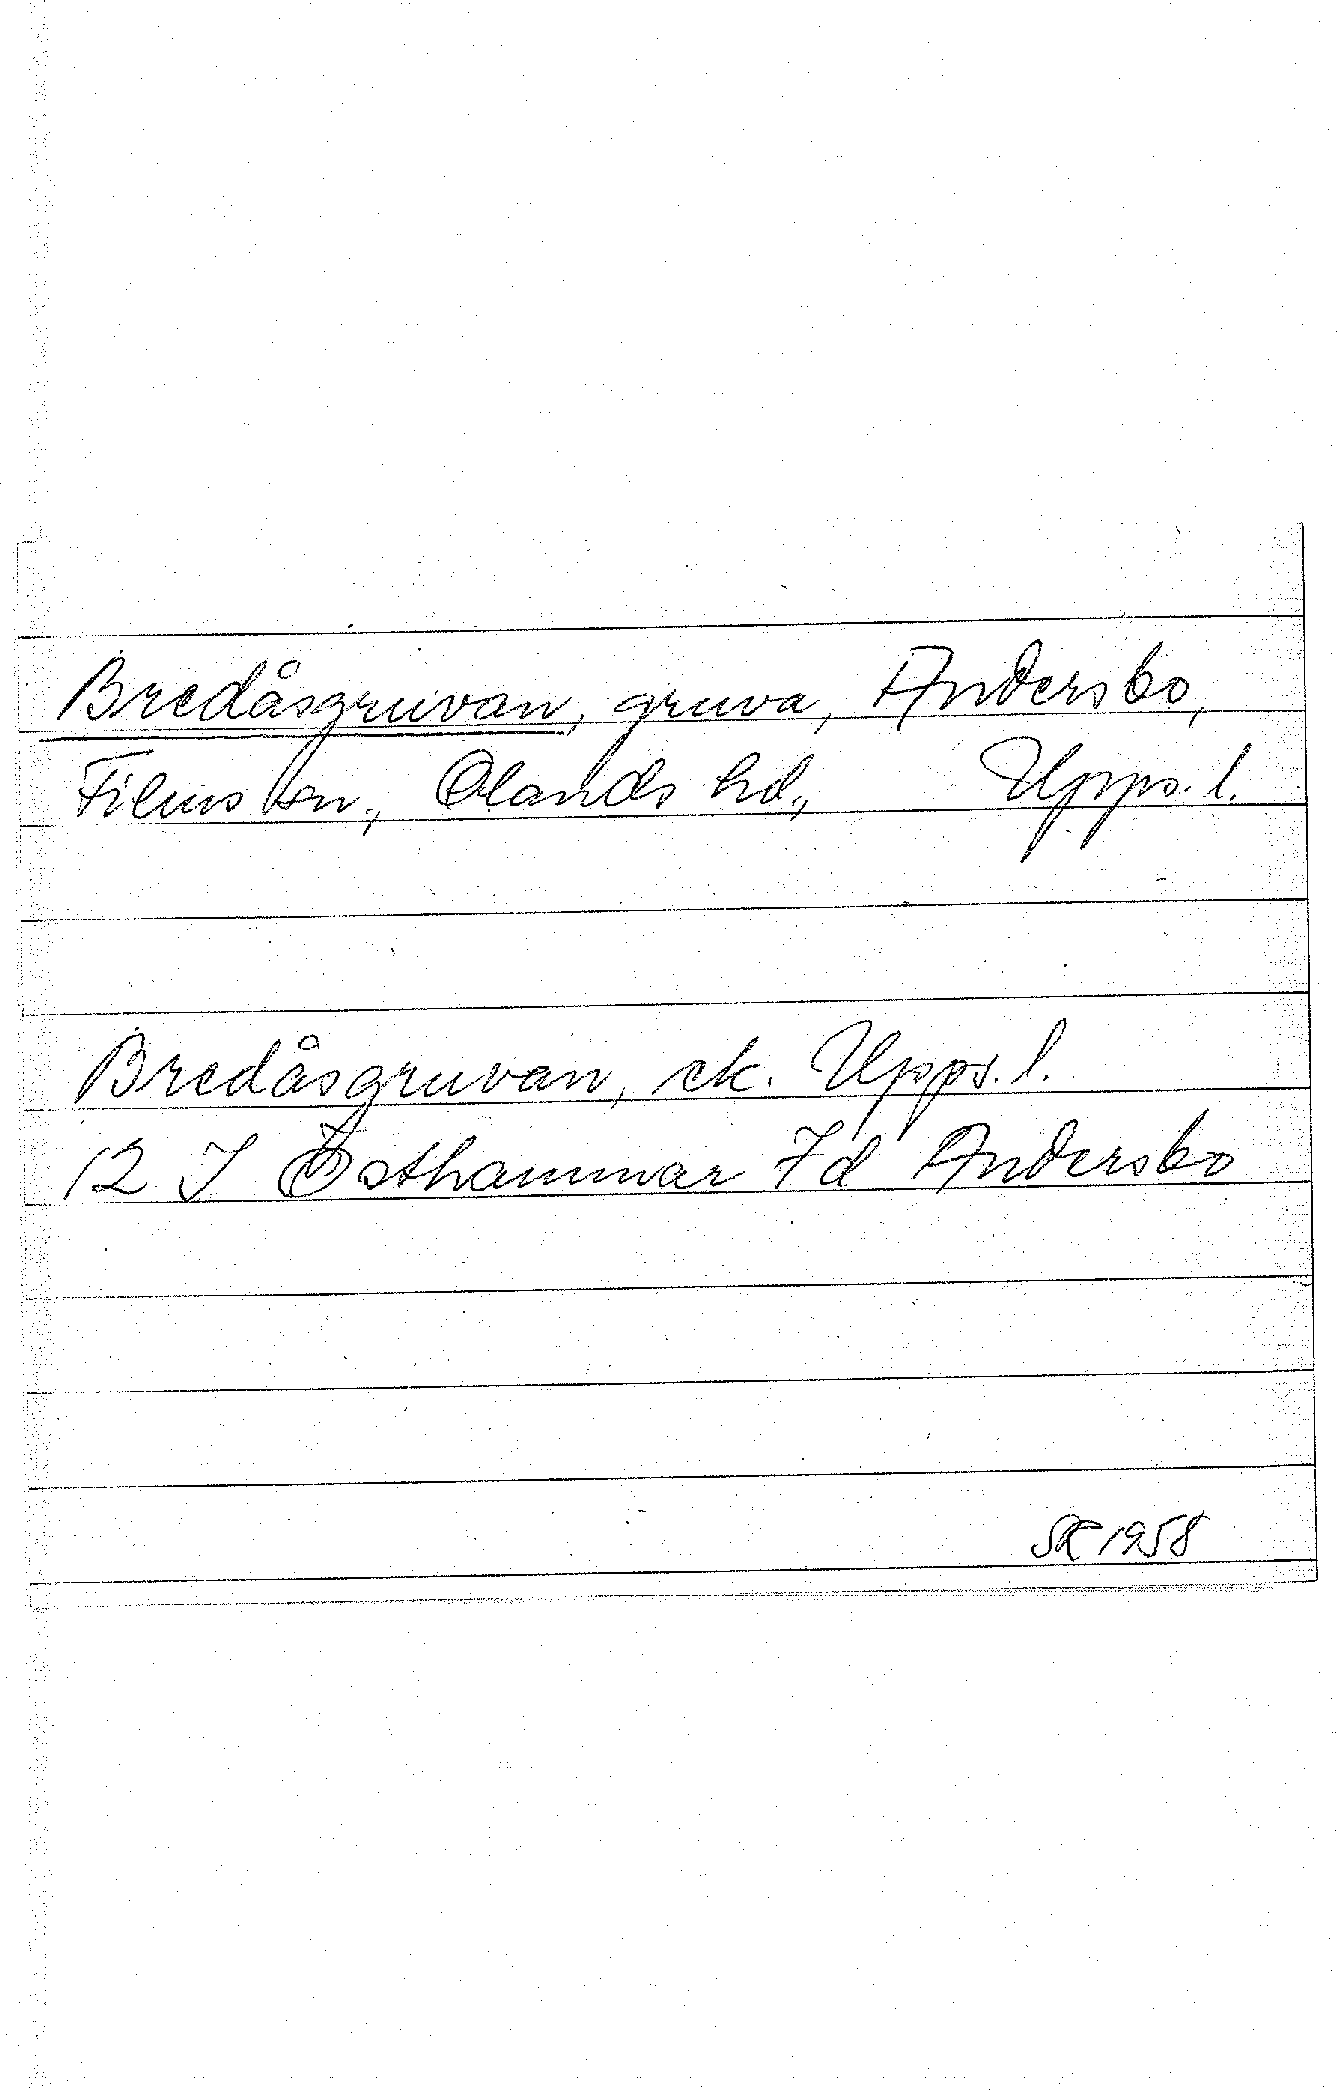 Bredåsgruvan, gruva, Andersbo,
Films sn., Olands hd., Upps. l.
Bredåsgruvan, ek. Upps. l.
12 I Östhammar 7d Andersbo
SK 1958